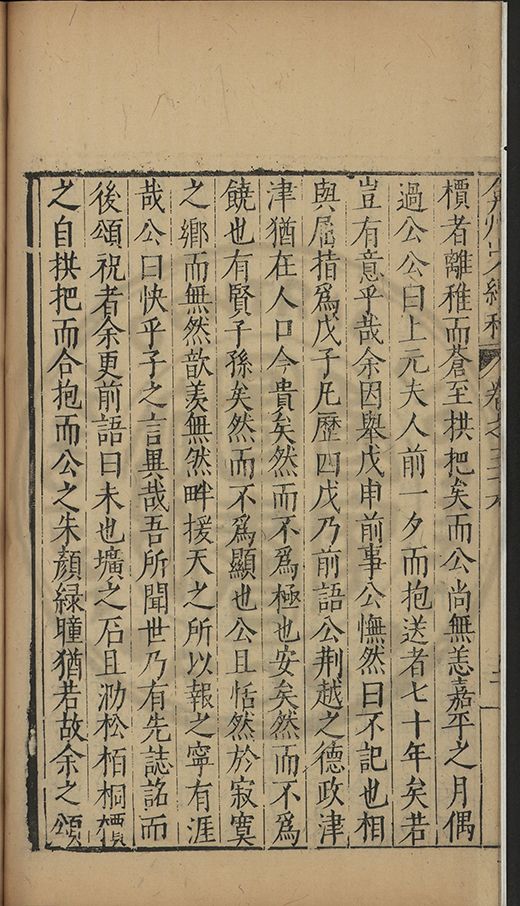 檟者離稚而蒼至拱把矣而公尚無恙嘉平之月偶
過公公曰上元夫人前一夕而抱送者七十年矣若
豈有意乎哉余因舉戊申前事公憮然曰不記也相
與屈指爲戊子凡歷四戊乃前語公荆越之德政津
津猶在人口今貴矣然而不爲極也安矣然而不爲
饒也有賢子孫矣然而不爲顯也公且恬然於寂寞
之鄉而無然歆羡無然畔援天之所以報之寧有涯
哉公曰快乎子之言異哉吾所聞世乃有先誌銘而
後頌祝者余更前語曰未也壙之石且泐松栢桐檟
之自拱把而合抱而公之朱顏緑瞳猶若故余之頌